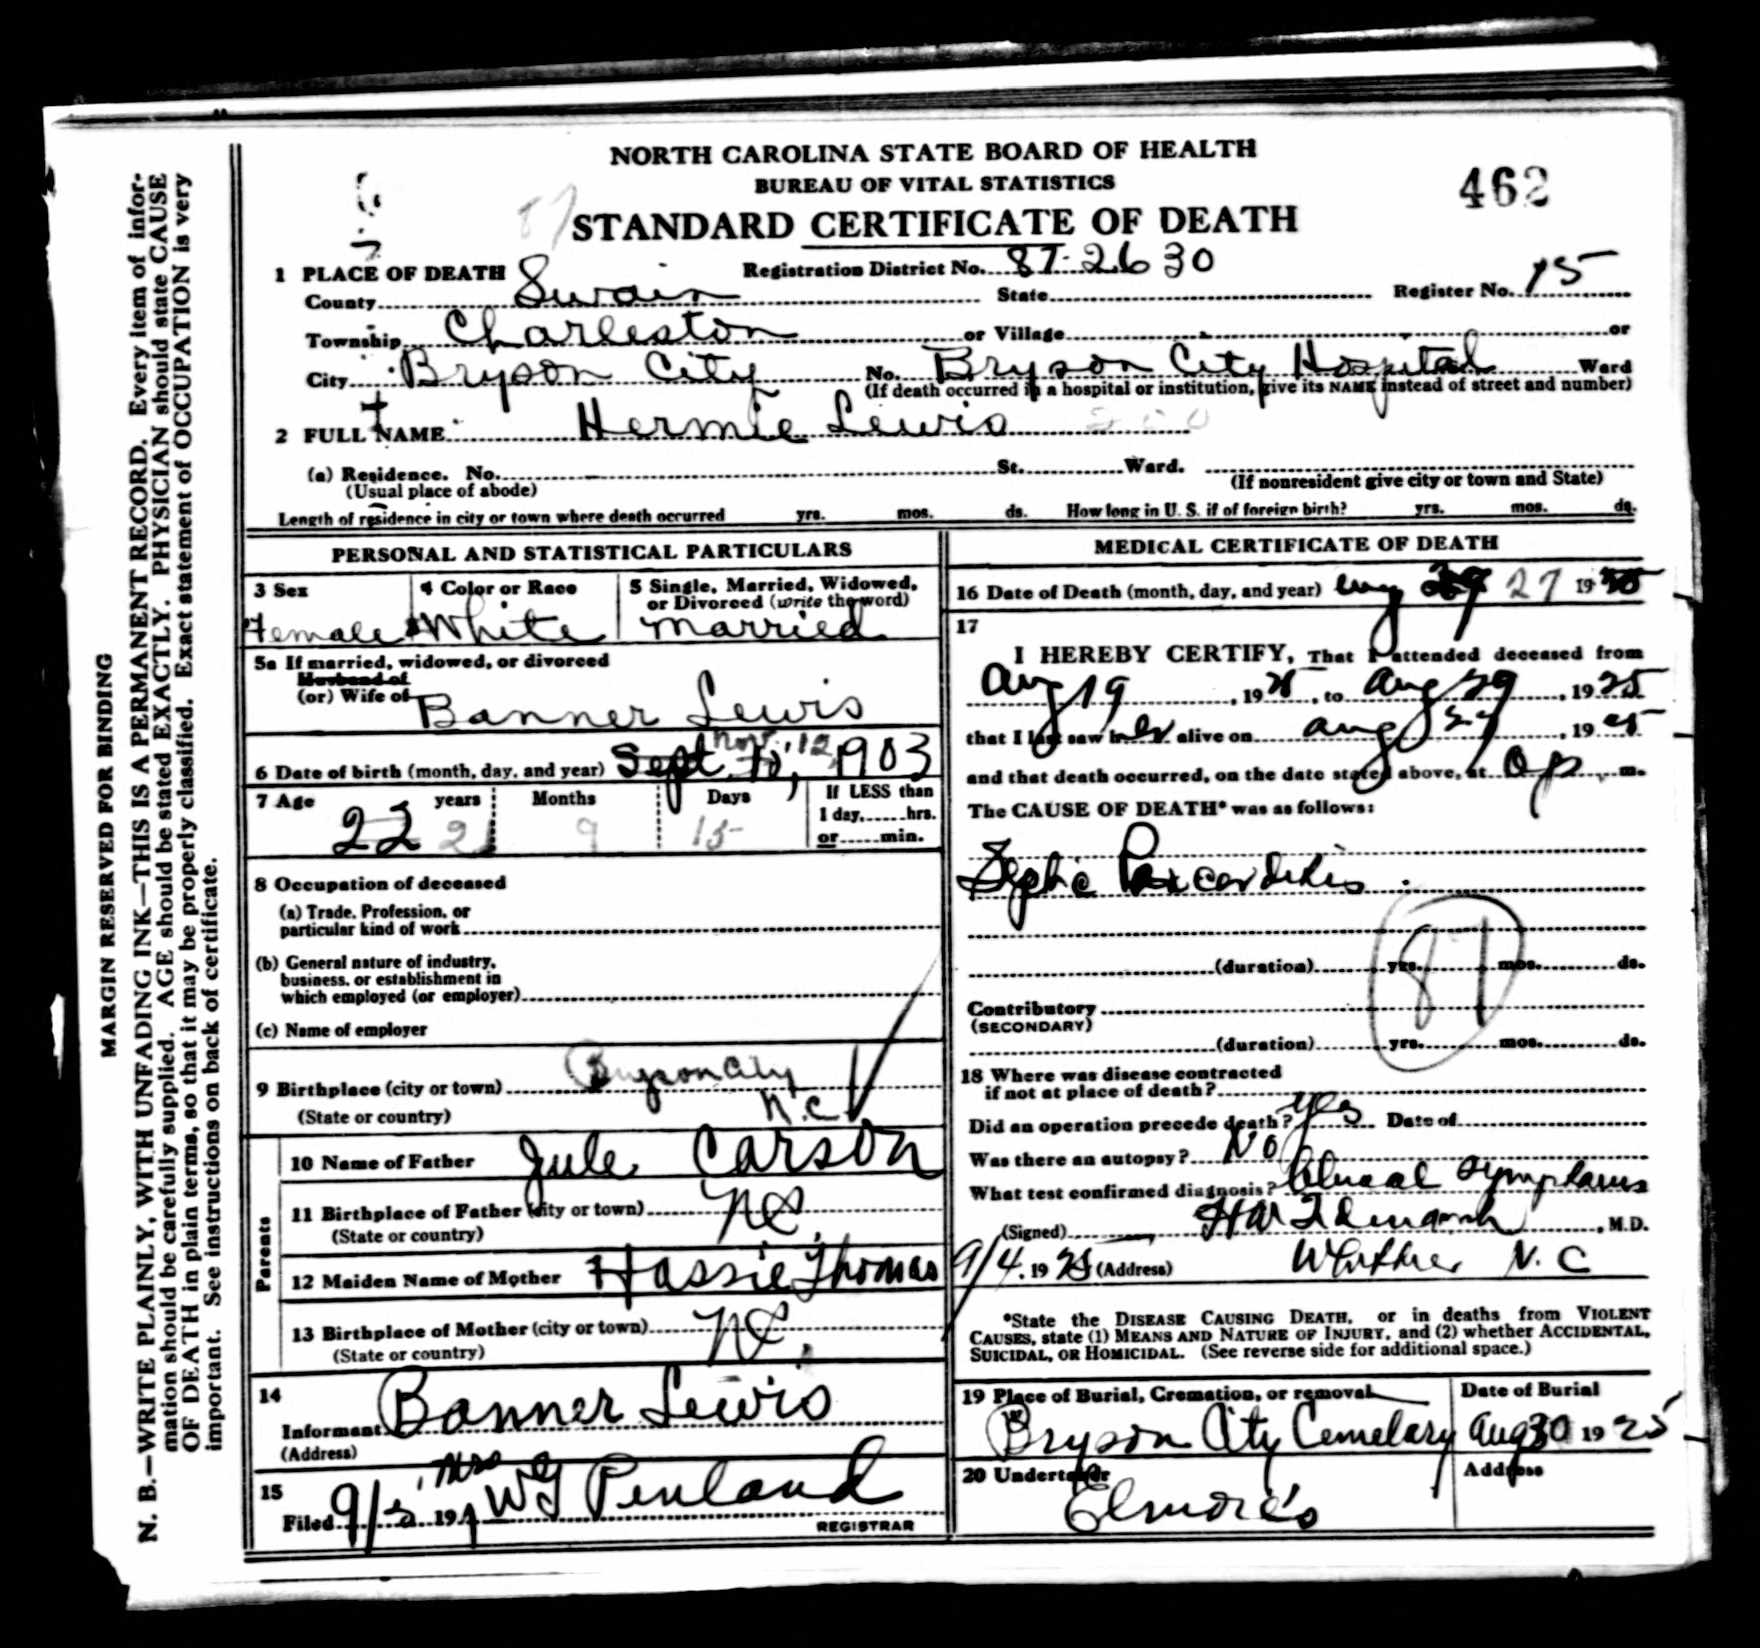 NORTH CAROLINA STATE BOARD OF HEALTH
BUREAU OF VITAL STATISTICS
462
STANDARD CERTIFICATE OF DEATH
1 PLACE OF DEATH Registration District No. 87-2630
County Swain State Register No. 15
Township Charleston or Village or
City Bryson City No. Bryson City Hospital Ward
(If death occurred in a hospital or institution, give its NAME instead of street and number)
2 FULL NAME Hermie Lewis
(a) Residence. No. St. Ward.
(Usual place of abode) (If nonresident give city or town and State)
Length of residence in city or town where death occurred yrs. mos. ds. How long in U. S. if of foreign birth? yrs. mos. ds.
PERSONAL AND STATISTICAL PARTICULARS
3 Sex 4 Color or Race 5 Single, Married, Widowed,
or Divorced (write the word)
Female White Married
5a If married, widowed, or divorced
Husband of
(or) Wife of Banner Lewis
Nov. 12,
6 Date of birth (month, day, and year) Sept 10, 1903
7 Age years Months Days If LESS than
1 day, hrs.
22 21 9 15 or min.
8 Occupation of deceased
(a) Trade, Profession, or
particular kind of work
(b) General nature of industry,
business, or establishment in
which employed (or employer)
(c) Name of employer
9 Birthplace (city or town) Bryson City
(State or country) N.C.
Parents
10 Name of Father Jule Carson
11 Birthplace of Father (city or town) NC.
(State or country)
12 Maiden Name of Mother Hassie Thomas
13 Birthplace of Mother (city or town) NC.
(State or country)
14
Informant Banner Lewis
(Address)
15 Mrs W G Penland
Filed 9/ 19
REGISTRAR
MEDICAL CERTIFICATE OF DEATH
16 Date of Death (month, day, and year) Aug 29 27 1925
17
I HEREBY CERTIFY, That I attended deceased from
Aug 19, 1925, to Aug 29, 1925
that I last saw her alive on Aug 29, 1925
and that death occurred, on the date stated above, at m.
The CAUSE OF DEATH* was as follows:
Septic Pericarditis
87
(duration) yrs. mos. ds.
Contributory
(SECONDARY)
(duration) yrs. mos. ds.
18 Where was disease contracted
if not at place of death?
Did an operation precede death? yes Date of
Was there an autopsy? No
What test confirmed diagnosis? Clinical symptoms
(Signed) M.D.
9/4. 1925 (Address) Whittier N. C
*State the DISEASE CAUSING DEATH, or in deaths from VIOLENT
CAUSES, state (1) MEANS AND NATURE OF INJURY, and (2) whether ACCIDENTAL,
SUICIDAL, OR HOMICIDAL. (See reverse side for additional space.)
19 Place of Burial, Cremation, or removal Date of Burial
Bryson City Cemetary Aug 30 1925
20 Undertaker Address
Elmore's
MARGIN RESERVED FOR BINDING
N. B.—WRITE PLAINLY, WITH UNFADING INK—THIS IS A PERMANENT RECORD. Every item of infor-
mation should be carefully supplied. AGE should be stated EXACTLY. PHYSICIAN should state CAUSE
OF DEATH in plain terms, so that it may be properly classified. Exact statement of OCCUPATION is very
important. See instructions on back of certificate.